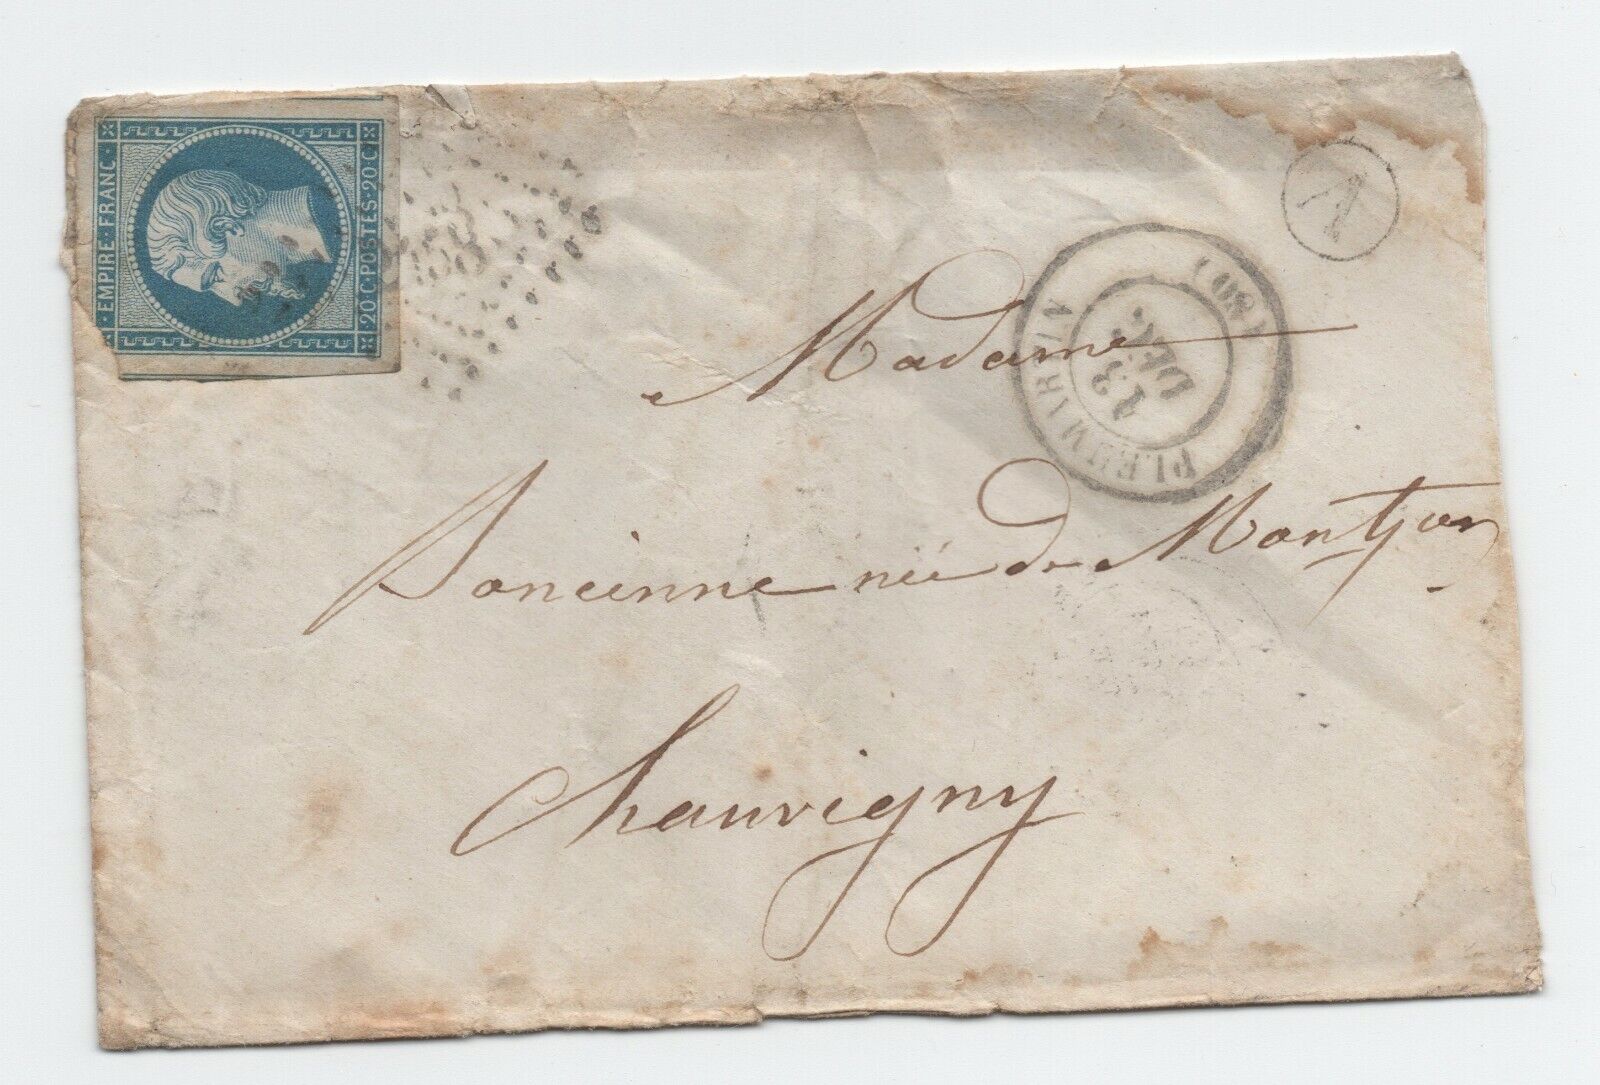 EMPIRE · FRANC ·
20 · C · POSTES · 20 · C
PLEUMARTIN (80)
23
DEC
Madame
Sancienne née de Montjon
Chauvigny